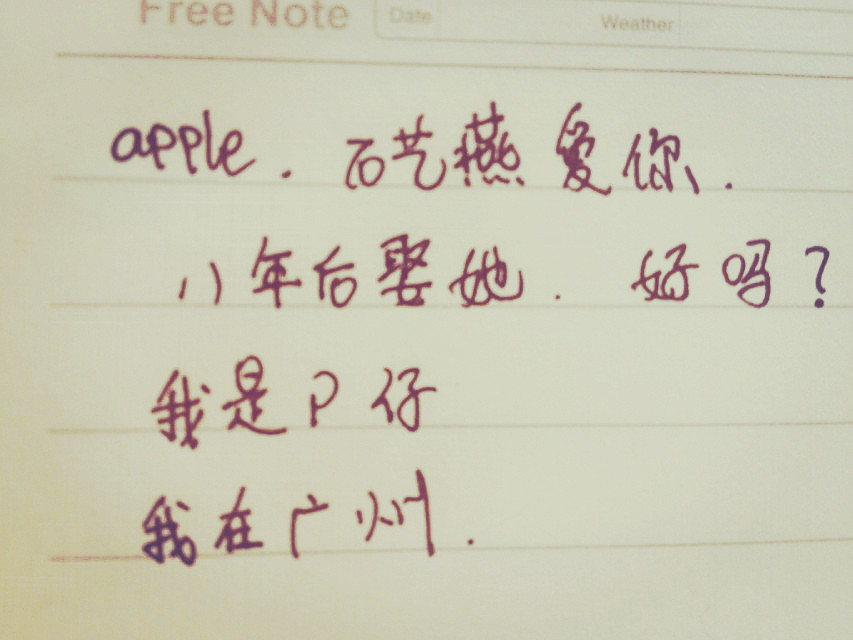 Free Note Date Weather
apple. 石艺燕爱你.
八年后娶她. 好吗?
我是P仔
我在广州.